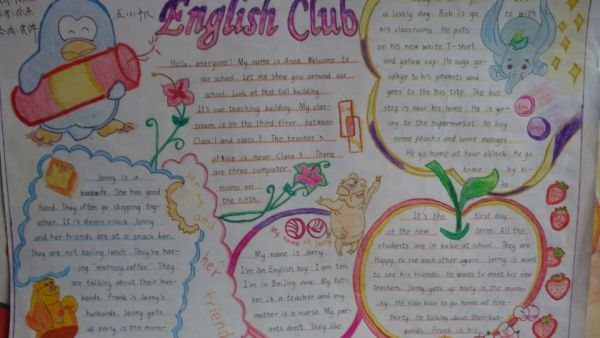 English Club
Hello, everyone! My name is Anna. Welcome to
our school. Let me show you around our
school. Look at that tall building.
It's our teaching building. My clas-
sroom is on the third floor, between
Class 1 and class 3. The teacher's
office is near Class 3. There
are three computer
rooms on
the fifth.
a lovely day. Bob is go
to with
his classrooms. He puts
on his new white T-shirt
and yellow cup. He says goo-
dbye to his parents and
goes to the bus stop. The bus
stop is near his home. He is go-
ing to the supermarket. He buy
some peachs and some mangos.
He go home at four o'clock. He go
home by bi-
ke
Jenny is a
housewife. She has good
fiend. They often go shopping tog-
ether. It is eleven o'clock. Jenny
and her friends are at a snack bar.
They are not having lunch. They're hav-
ing "morning coffee". They
are talking about their hus-
bands. Frank is Jenny's
husbands. Jenny gets
up early in the morn-
Jenny and her friend
My name is Jerry
My name is Jerry.
I'm an English boy. I am ten.
I'm in Beijing now. My fat-
her is a teacher and my
mother is a nurse. My par-
ents don't. They like
It's the first day
of the new term. All the
students are in bake at school. They are
Happy to see each other again. Jerry is want
to see his friends. He wants to meet his new
teachers. Jerry gets up early in the morn-
ing. He ride bike to go home at five-
thirty. He talking about their hus-
bands. Frank is his